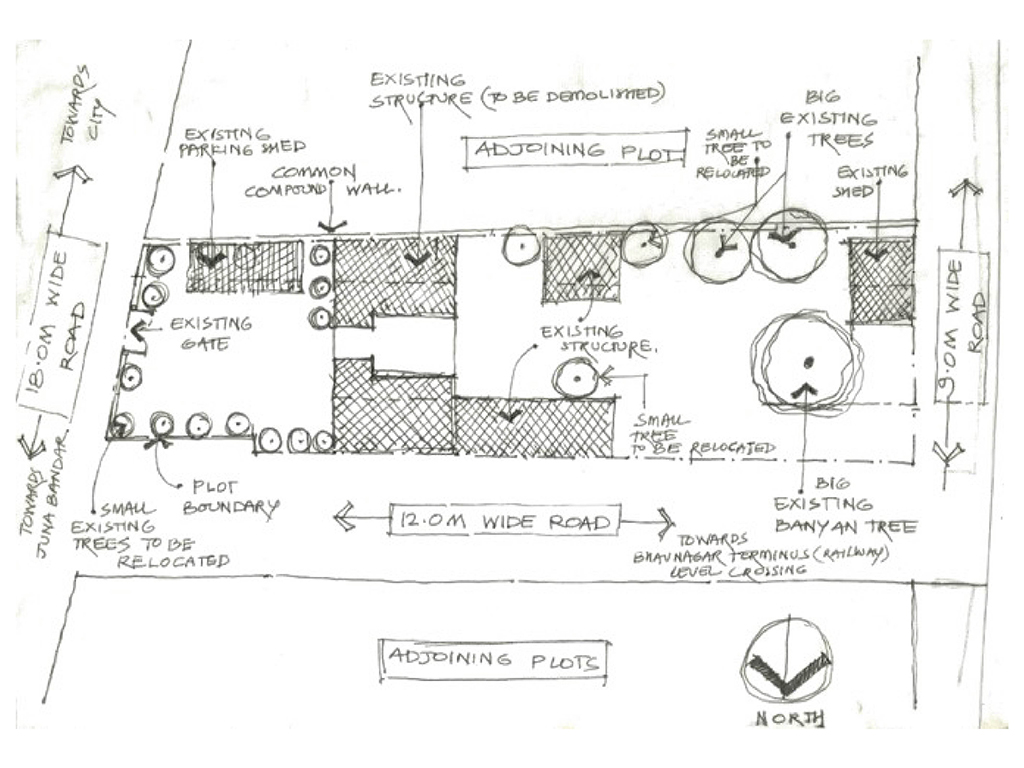 TOWARDS
CITY
EXISTING
STRUCTURE (TO BE DEMOLISHED)
EXISTING
PARKING SHED
COMMON
COMPOUND WALL.
ADJOINING PLOT
SMALL
TREE TO
BE
RELOCATED
BIG
EXISTING
TREES
EXISTING
SHED
18.0M WIDE
ROAD
EXISTING
GATE
EXISTING
STRUCTURE.
9.0M WIDE
ROAD
SMALL
TREE
TO BE RELOCATED
TOWARDS
JUNA BANDAR
PLOT
BOUNDARY
SMALL
EXISTING
TREES TO BE
RELOCATED
12.0M WIDE ROAD
BIG
EXISTING
BANYAN TREE
TOWARDS
BHAVNAGAR TERMINUS (RAILWAY)
LEVEL CROSSING
ADJOINING PLOTS
NORTH